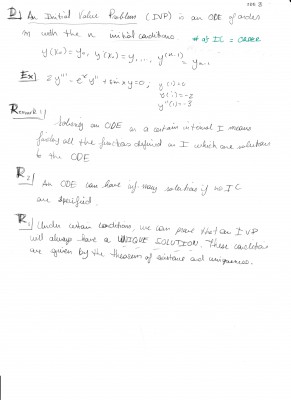 D) An Initial Value Problem (IVP) is an ODE of order
n with the n initial conditions # of IC = ORDER
y(x₀) = y₀, y'(x₀) = y₁, ..., y⁽ⁿ⁻¹⁾ = yₙ₋₁
Ex) 2y''' - eˣy'' + sin x y = 0; y(1) = 0
y'(1) = -2
y''(1) = -3
Remark 1)
Solving an ODE on a certain interval I means
finding all the functions defined on I which are solutions
to the ODE
R2) An ODE can have inf. many solutions if no IC
are specified.
R3) Under certain conditions, we can prove that an IVP
will always have a UNIQUE SOLUTION. These conditions
are given by the theorem of existence and uniqueness.